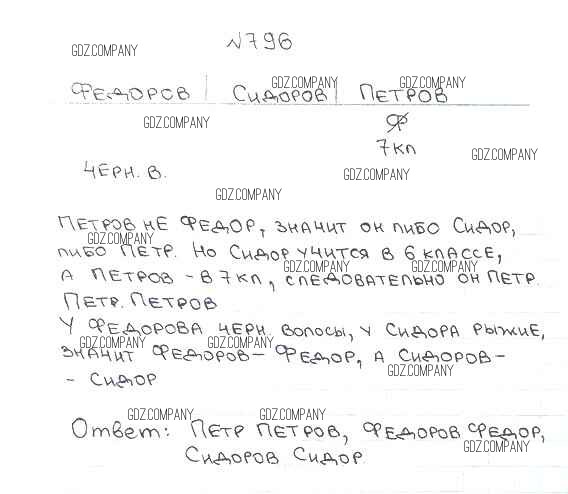 №796
GDZ.COMPANY
GDZ.COMPANY GDZ.COMPANY
ФЕДОРОВ | СИДОРОВ | ПЕТРОВ
GDZ.COMPANY
7КЛ
GDZ.COMPANY
ЧЕРН. В.
GDZ.COMPANY
GDZ.COMPANY
ПЕТРОВ НЕ ФЕДОР, ЗНАЧИТ ОН ЛИБО СИДОР,
GDZ.COMPANY
ЛИБО ПЕТР. НО СИДОР УЧИТСЯ В 6 КЛАССЕ,
GDZ.COMPANY GDZ.COMPANY
А ПЕТРОВ - В 7 КЛ, СЛЕДОВАТЕЛЬНО ОН ПЕТР.
ПЕТР. ПЕТРОВ
У ФЕДОРОВА ЧЕРН. ВОЛОСЫ, У СИДОРА РЫЖИЕ,
GDZ.COMPANY GDZ.COMPANY
ЗНАЧИТ ФЕДОРОВ - ФЕДОР, А СИДОРОВ -
GDZ.COMPANY
- СИДОР
GDZ.COMPANY GDZ.COMPANY
Ответ: ПЕТР ПЕТРОВ, ФЕДОРОВ ФЕДОР,
GDZ.COMPANY
СИДОРОВ СИДОР.